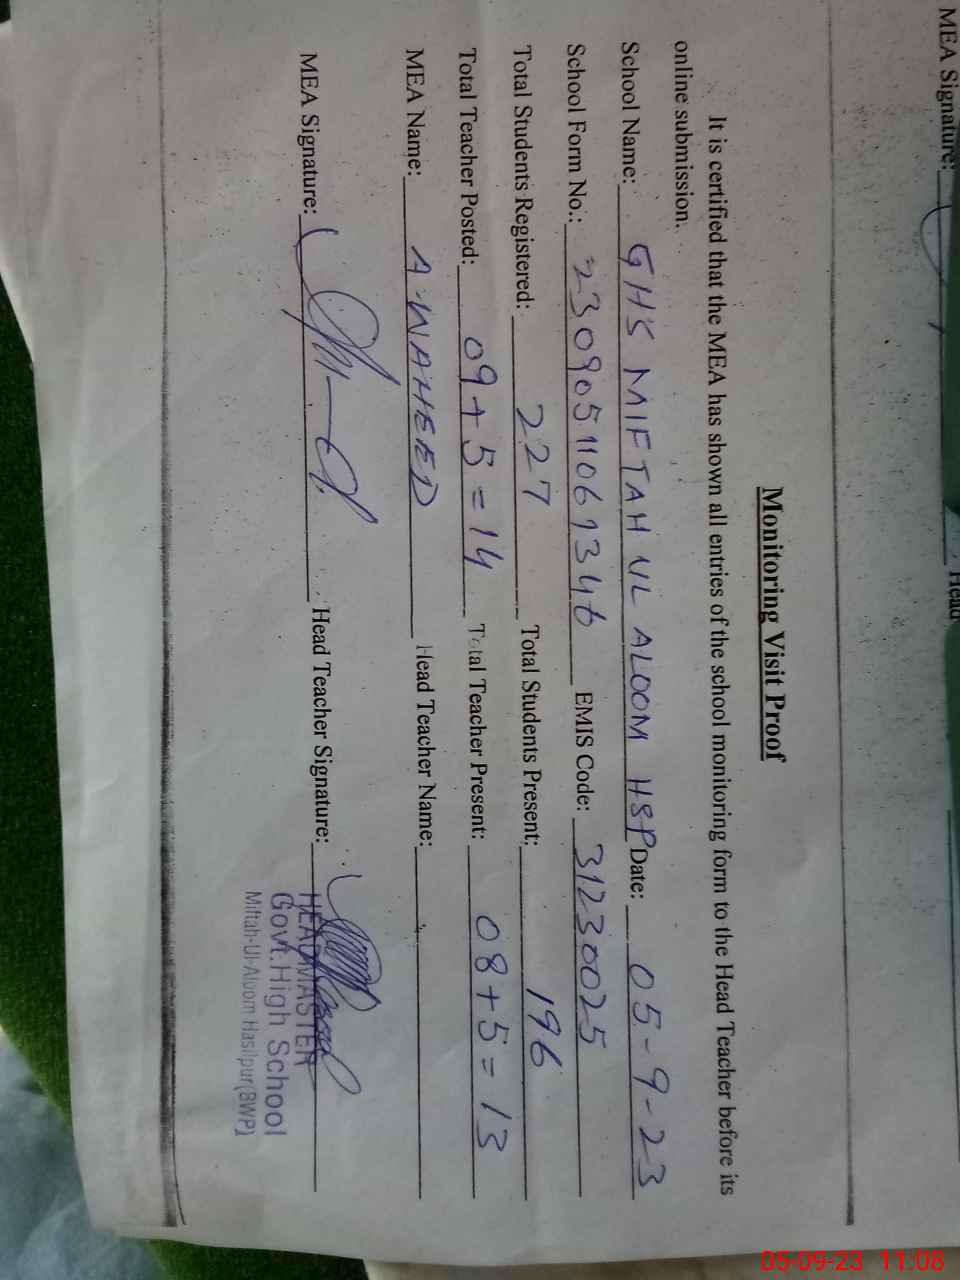 MEA Signature:
Head
Monitoring Visit Proof
It is certified that the MEA has shown all entries of the school monitoring form to the Head Teacher before its
online submission.
School Name: GHS MIFTAH UL ALOOM HSP Date: 05-9-23
School Form No.: EMIS Code: 31230025
Total Students Registered: 227 Total Students Present: 196
Total Teacher Posted: 09+5=14 Total Teacher Present: 08+5=13
MEA Name: A. WAHEED Head Teacher Name:
MEA Signature: Head Teacher Signature:
HEADMASTER
Govt. High School
Miftah-Ul-Aloom Hasilpur(BWP)
05-09-23 11:08